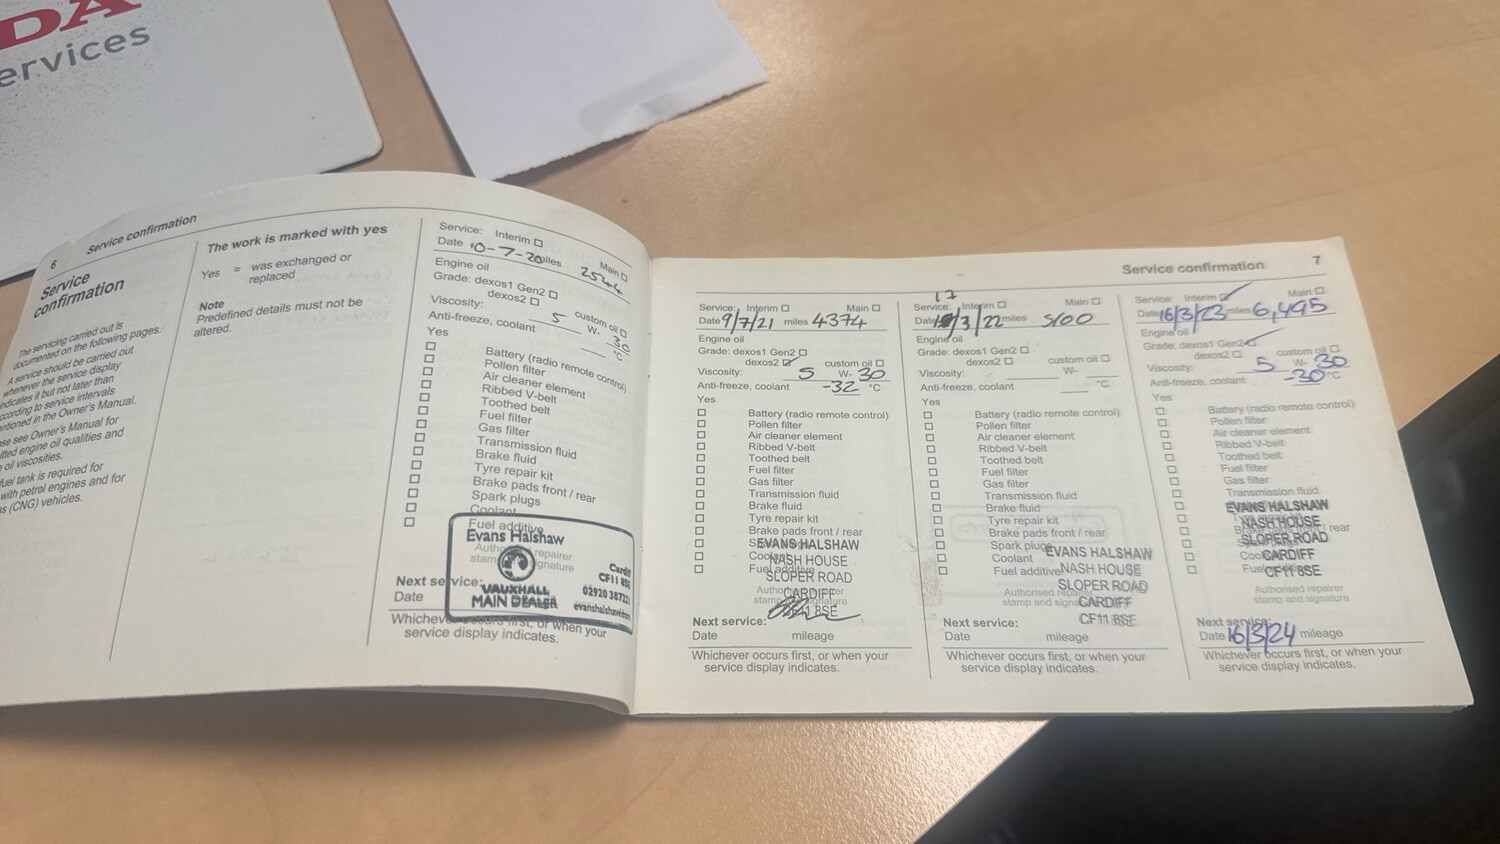 DA
ervices
6 Service confirmation
Service
confirmation
The servicing carried out is
documented on the following pages.
A service should be carried out
whenever the service display
indicates it but not later than
ccording to service intervals
entioned in the Owner's Manual.
se see Owner's Manual for
itted engine oil qualities and
oil viscosities.
fuel tank is required for
with petrol engines and for
s (CNG) vehicles.
The work is marked with yes
Yes = was exchanged or
replaced
Note
Predefined details must not be
altered.
Service: Interim Main
Date 10-7-20 miles 2544
Engine oil
Grade: dexos1 Gen2
dexos2 custom oil
Viscosity: 5 W- 30
Anti-freeze, coolant °C
Yes
Battery (radio remote control)
Pollen filter
Air cleaner element
Ribbed V-belt
Toothed belt
Fuel filter
Gas filter
Transmission fluid
Brake fluid
Tyre repair kit
Brake pads front / rear
Spark plugs
Coolant
Fuel additive
Evans Halshaw
VAUXHALL
MAIN DEALER
CF11 8SE
Next service:
Date
Whichever occurs first, or when your
service display indicates.
Service confirmation 7
Service: Interim Main
Date 9/7/21 miles 4374
Engine oil
Grade: dexos1 Gen2
dexos2 custom oil
Viscosity: 5 W- 30
Anti-freeze, coolant -32 °C
Yes
Battery (radio remote control)
Pollen filter
Air cleaner element
Ribbed V-belt
Toothed belt
Fuel filter
Gas filter
Transmission fluid
Brake fluid
Tyre repair kit
Brake pads front / rear
Coolant
Fuel additive
EVANS HALSHAW
NASH HOUSE
SLOPER ROAD
CARDIFF
CF11 8SE
Next service:
Date mileage
Whichever occurs first, or when your
service display indicates.
17
Service: Interim Main
Date /3/22 miles 5100
Engine oil
Grade: dexos1 Gen2
dexos2 custom oil
Viscosity: W-
Anti-freeze, coolant °C
Yes
Battery (radio remote control)
Pollen filter
Air cleaner element
Ribbed V-belt
Toothed belt
Fuel filter
Gas filter
Transmission fluid
Brake fluid
Tyre repair kit
Brake pads front / rear
Spark plugs
Coolant
Fuel additive
EVANS HALSHAW
NASH HOUSE
SLOPER ROAD
CARDIFF
CF11 8SE
Authorised repairer
stamp and signature
Next service:
Date mileage
Whichever occurs first, or when your
service display indicates.
Service: Interim Main
Date 16/3/23 miles 6,495
Engine oil
Grade: dexos1 Gen2
dexos2 custom oil
Viscosity: 5 W- 30
Anti-freeze, coolant -30 °C
Yes
Battery (radio remote control)
Pollen filter
Air cleaner element
Ribbed V-belt
Toothed belt
Fuel filter
Gas filter
Transmission fluid
EVANS HALSHAW
NASH HOUSE
SLOPER ROAD
CARDIFF
CF11 8SE
Authorised repairer
stamp and signature
Next service:
Date 16/3/24 mileage
Whichever occurs first, or when your
service display indicates.